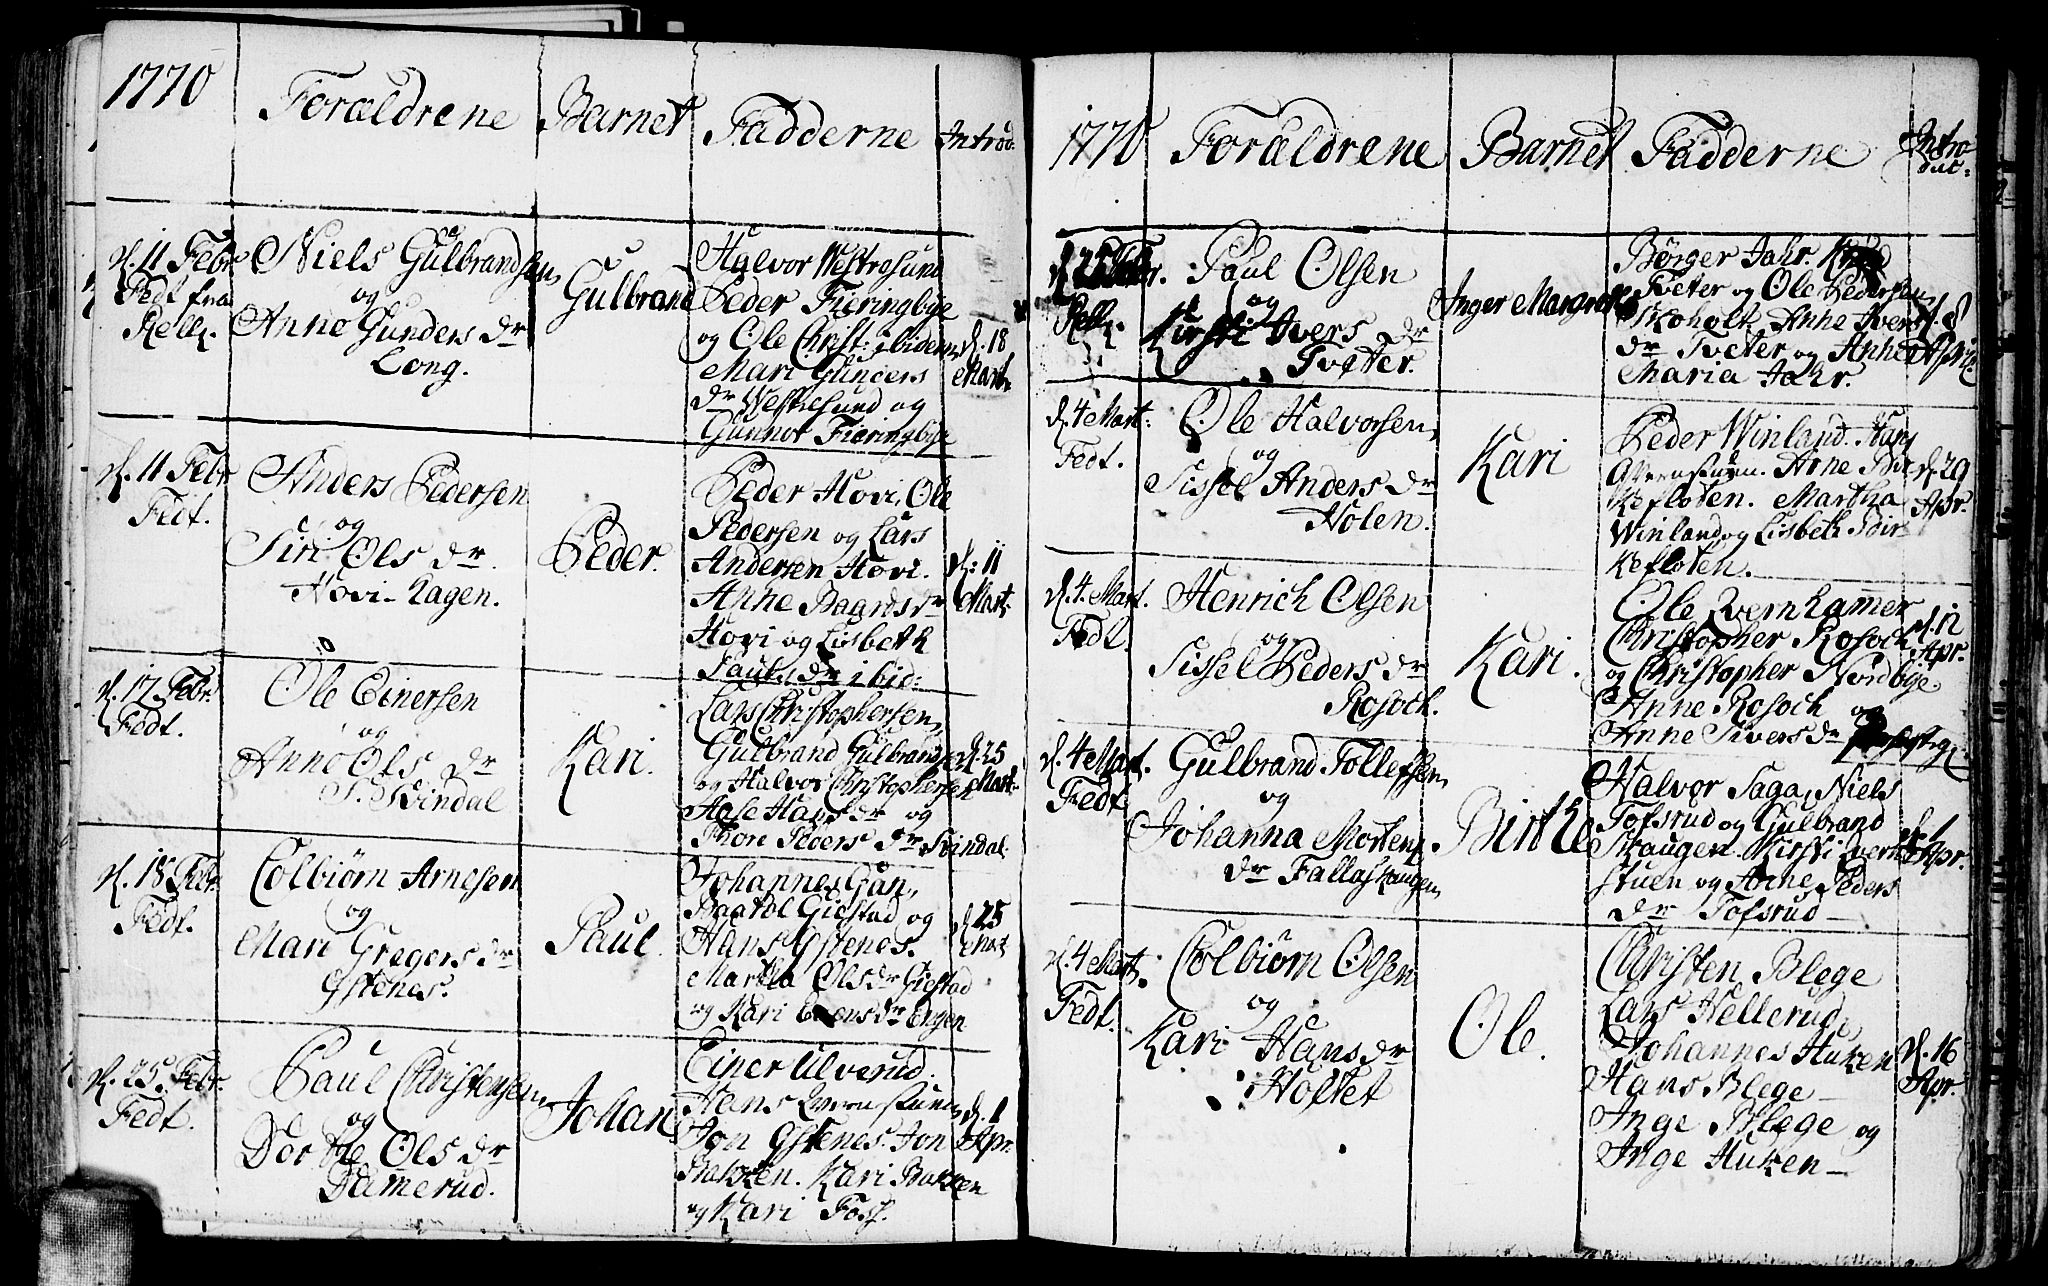 1770
Forældrene
Barnet
Fadderne
Introd:
d. 11 Febr.
Fedt fra
Relli.
Niels Gulbrandsen
og
Anne Gunders dr
Long.
Gulbrand
Halvor Westresund
Peder Fieringbye
og Ole Christ: ibidem
Mari Gunders
dr Westresund og
Gunnor Fieringbye
d. 18
Mart:
d. 11 Febr.
Fedt.
Anders Pedersen
og
Siri Ols dr
Hovi-hagen.
Peder.
Peder Hovi, Ole
Pedersen og Lars
Andersen Hovi.
Anne Bagrds dr
Hovi og Lisbeth
Pauls dr ibid:
d: 11
Mart:
d. 17 Febr.
Fedt.
Ole Einersen
og
Anne Ols dr
S. Svindal
Kari.
Lars Christophersen,
Gulbrand Gulbrands.
og Halvor Christophersen
Aase Hans dr og
Thore Peders dr Svindal.
d. 25
Mart:
d. 18 Febr.
Fedt.
Colbiørn Arnesen
og
Mari Gregers dr
Østenes.
Paul.
Johannes Gun,
Baardl Giestad og
Hans Østenes.
Martha Ols dr Giestad
og Kari dr Engen
d. 25
Mart
d. 25. Febr.
Fedt.
Paul Christensen,
og
Dorthe Ols dr
Damerud.
Johan
Einer Ulverud.
Hans Qvernstuen
Jon Østenes. Jon
Bakken. Kari Bakken
og Kari Foss.
d. 1
Apr.
1770
Forældrene
Barnet
Fadderne
Introduct:
d. 25 Febr.
Relli.
Paul Olsen
og
Kirsti Ivers dr
Tveter.
Inger Margrethe
Børger Jahr.
Tveter og Ole Pedersen
Skoholt Anne Ivers
dr Tveter og Anne
Maria Jahr.
d. 8
April
d. 4 Mart:
Fedt.
Ole Halvorsen,
og
Sissel Anders dr
Holen.
Kari
Peder Winland. Hans
Qvernstuen. Arne
Kefloten. Martha
Winland og Lisbeth
Kefloten.
d. 29
Apr.
d. 4. Mart.
Fedt.
Henrich Olsen
og
Sissel Peders dr
Rosoch.
Kari.
Ole Qvernhamer
Christopher Rosoch
og Christopher Nordbye
Anne Rosoch og
Anne Sivers dr
d. 12
Apr.
d. 4 Mart.
Fedt
Gulbrand Tollefsen,
og
Johanna Mortens
dr Fallaskaugen,
Birthe
Halvor Saga, Niels
Tofsrud og Gulbrand
Skaugen. Kirsti Qvern
stuen og Anne Peders
dr Tofsrud
d. 1
Apr.
d. 4 Mart.
Fedt.
Colbiørn Olsen
og
Kari Hans dr
Holtet
Ole.
Christen Blege
Lars Hellerud,
Johannes Huken
Hans Blege
Inge Blege og
Inge Huken
d. 16
Apr.